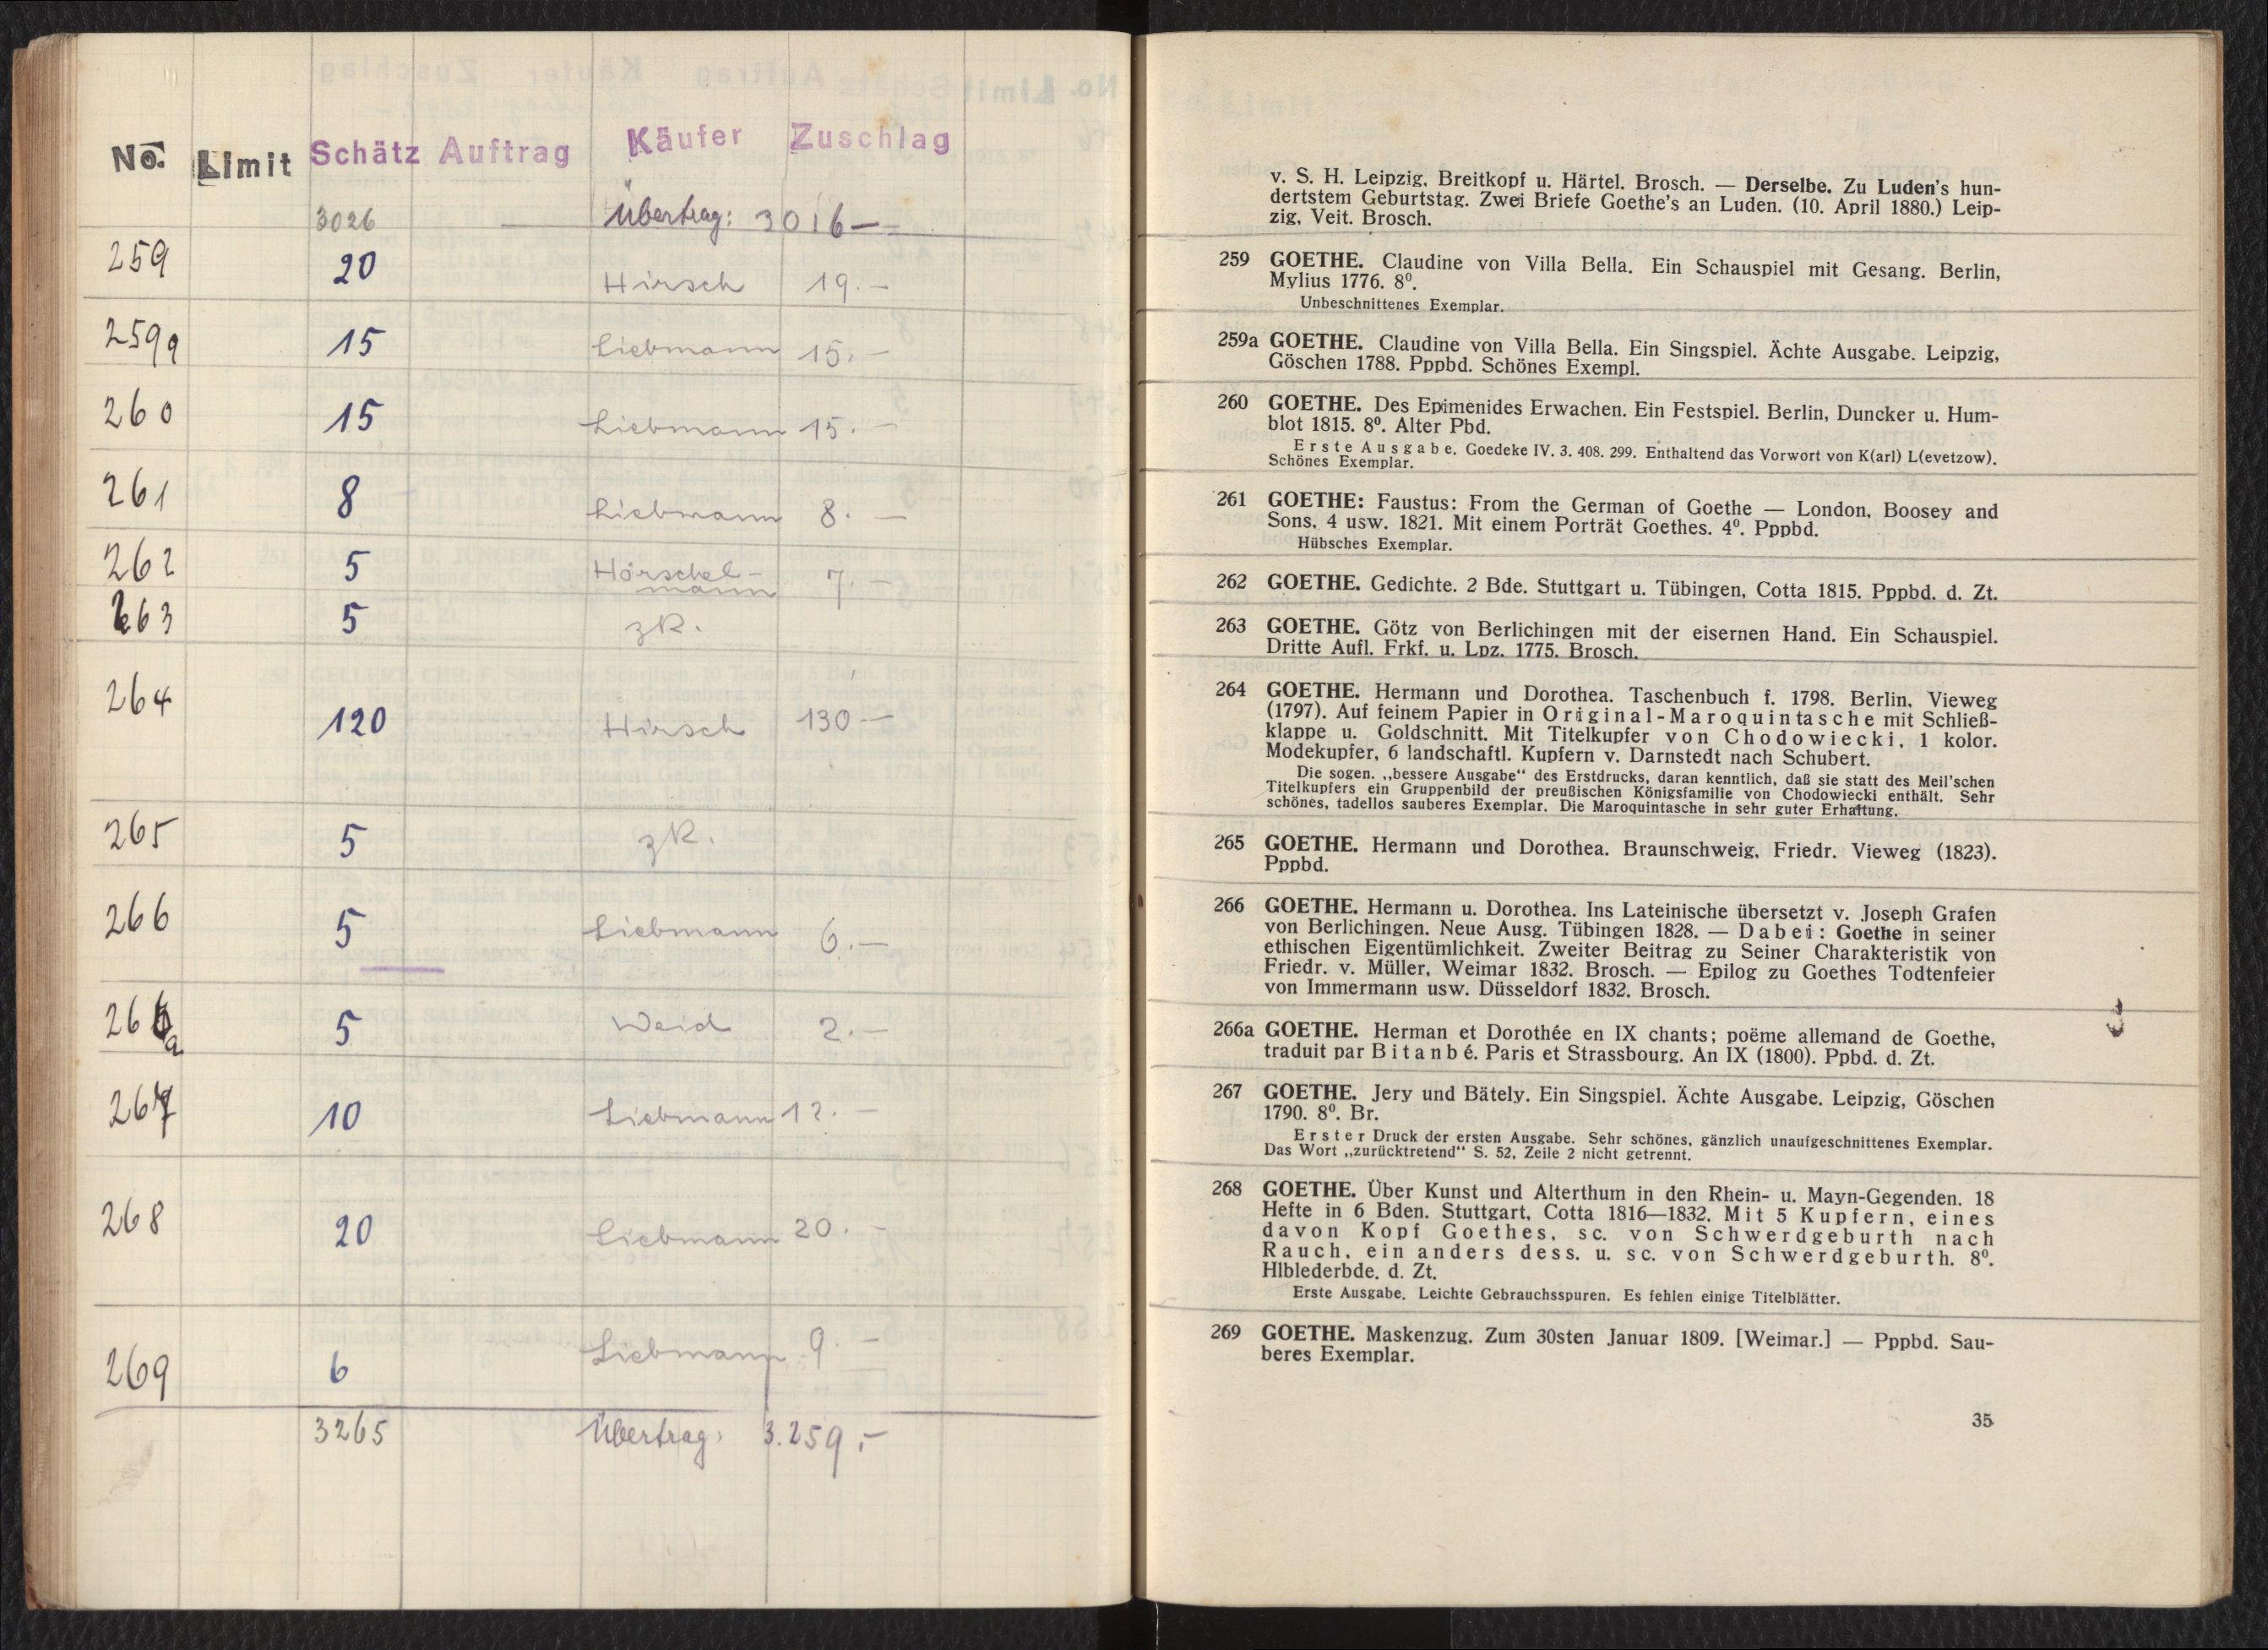 No. Limit Schätz Auftrag Käufer Zuschlag
3026 Übertrag: 3016 —
259 20 Hirsch 19.—
259a 15 Liebmann 15.—
260 15 Liebmann 15.—
261 8 Liebmann 8.—
262 5 Hörschel-
mann 7.—
263 5 zR.
264 120 Hirsch 130 —
265 5 zR.
266 5 Liebmann 6.—
266a 5 Weid 2.—
267 10 Liebmann 12.—
268 20 Liebmann 20.—
269 6 Liebmann 9.—
3265 Übertrag: 3.259.—
v. S. H. Leipzig, Breitkopf u. Härtel. Brosch. — Derselbe. Zu Luden's hun-
dertstem Geburtstag. Zwei Briefe Goethe's an Luden. (10. April 1880.) Leip-
zig, Veit. Brosch.
259 GOETHE. Claudine von Villa Bella. Ein Schauspiel mit Gesang. Berlin,
Mylius 1776. 8⁰.
Unbeschnittenes Exemplar.
259a GOETHE. Claudine von Villa Bella. Ein Singspiel. Ächte Ausgabe. Leipzig,
Göschen 1788. Pppbd. Schönes Exempl.
260 GOETHE. Des Epimenides Erwachen. Ein Festspiel. Berlin, Duncker u. Hum-
blot 1815. 8⁰. Alter Pbd.
Erste Ausgabe. Goedeke IV. 3. 408. 299. Enthaltend das Vorwort von K(arl) L(evetzow).
Schönes Exemplar.
261 GOETHE: Faustus: From the German of Goethe — London, Boosey and
Sons, 4 usw. 1821. Mit einem Porträt Goethes. 4⁰. Pppbd.
Hübsches Exemplar.
262 GOETHE. Gedichte. 2 Bde. Stuttgart u. Tübingen, Cotta 1815. Pppbd. d. Zt.
263 GOETHE. Götz von Berlichingen mit der eisernen Hand. Ein Schauspiel.
Dritte Aufl. Frkf. u. Lpz. 1775. Brosch.
264 GOETHE. Hermann und Dorothea. Taschenbuch f. 1798. Berlin, Vieweg
(1797). Auf feinem Papier in Original-Maroquintasche mit Schließ-
klappe u. Goldschnitt. Mit Titelkupfer von Chodowiecki, 1 kolor.
Modekupfer, 6 landschaftl. Kupfern v. Darnstedt nach Schubert.
Die sogen. „bessere Ausgabe“ des Erstdrucks, daran kenntlich, daß sie statt des Meil'schen
Titelkupfers ein Gruppenbild der preußischen Königsfamilie von Chodowiecki enthält. Sehr
schönes, tadellos sauberes Exemplar. Die Maroquintasche in sehr guter Erhaltung.
265 GOETHE. Hermann und Dorothea. Braunschweig, Friedr. Vieweg (1823).
Pppbd.
266 GOETHE. Hermann u. Dorothea. Ins Lateinische übersetzt v. Joseph Grafen
von Berlichingen. Neue Ausg. Tübingen 1828. — Dabei: Goethe in seiner
ethischen Eigentümlichkeit. Zweiter Beitrag zu Seiner Charakteristik von
Friedr. v. Müller, Weimar 1832. Brosch. — Epilog zu Goethes Todtenfeier
von Immermann usw. Düsseldorf 1832. Brosch.
266a GOETHE. Herman et Dorothée en IX chants; poëme allemand de Goethe,
traduit par Bitanbé. Paris et Strassbourg. An IX (1800). Ppbd. d. Zt.
267 GOETHE. Jery und Bätely. Ein Singspiel. Ächte Ausgabe. Leipzig, Göschen
1790. 8⁰. Br.
Erster Druck der ersten Ausgabe. Sehr schönes, gänzlich unaufgeschnittenes Exemplar.
Das Wort „zurücktretend“ S. 52, Zeile 2 nicht getrennt.
268 GOETHE. Über Kunst und Alterthum in den Rhein- u. Mayn-Gegenden. 18
Hefte in 6 Bden. Stuttgart, Cotta 1816—1832. Mit 5 Kupfern, eines
davon Kopf Goethes, sc. von Schwerdgeburth nach
Rauch, ein anders dess. u. sc. von Schwerdgeburth. 8⁰.
Hlblederbde. d. Zt.
Erste Ausgabe. Leichte Gebrauchsspuren. Es fehlen einige Titelblätter.
269 GOETHE. Maskenzug. Zum 30sten Januar 1809. [Weimar.] — Pppbd. Sau-
beres Exemplar.
35